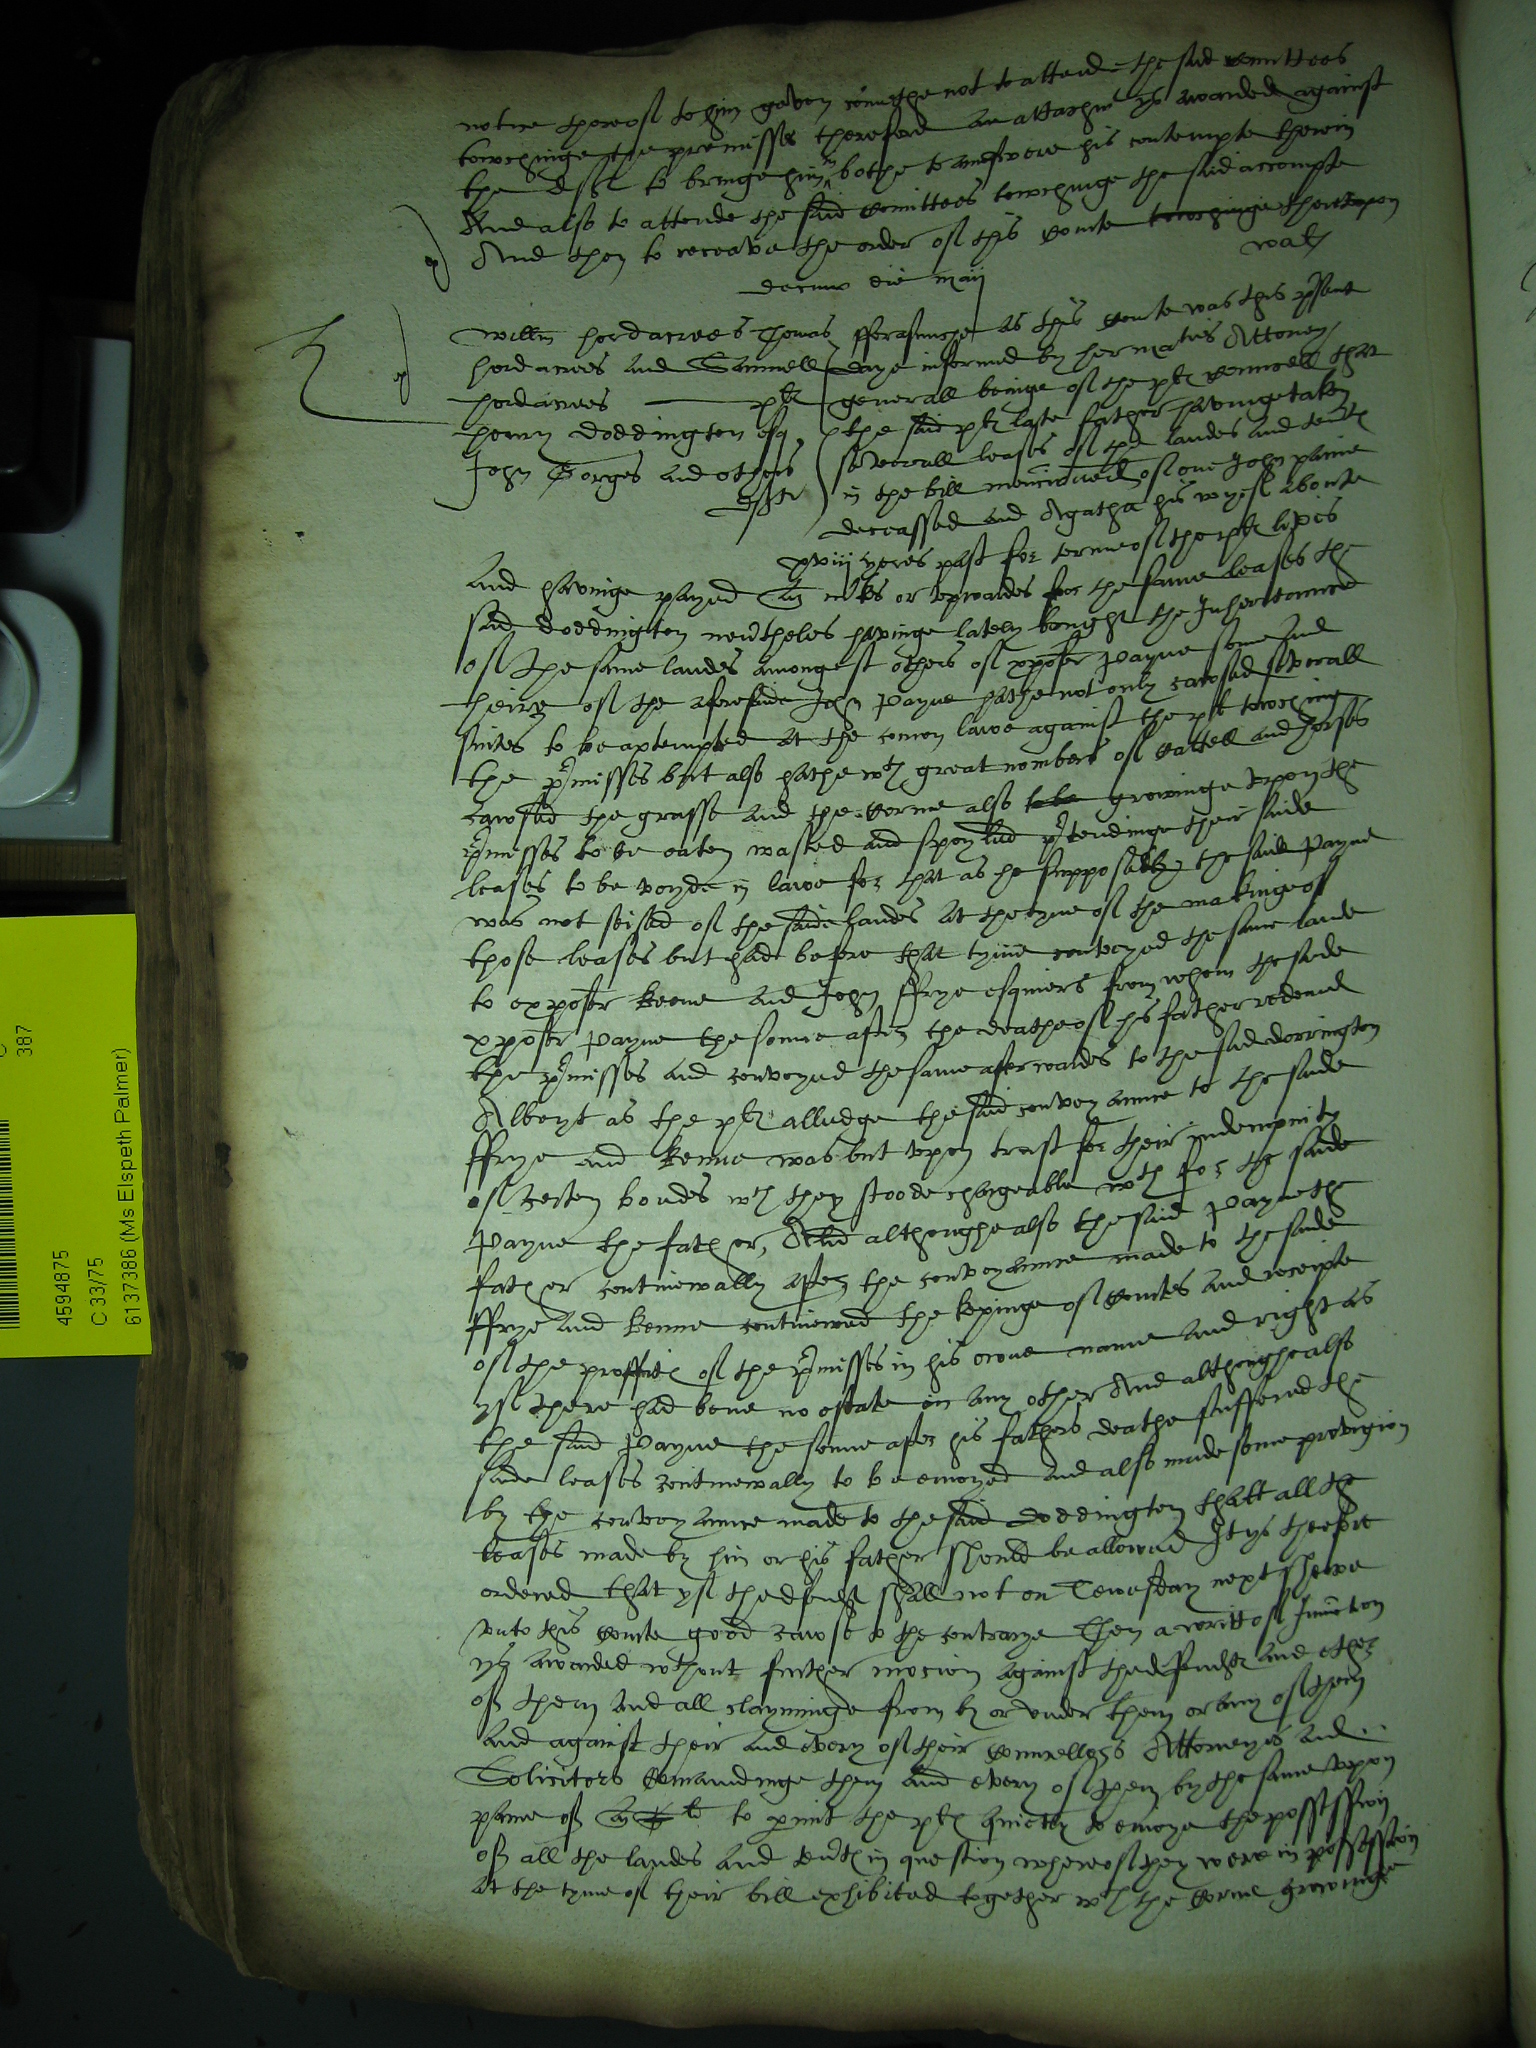 notice thereof to him geven cometh he not to attend the said comittees
towchinge the premisses therefore an attachmt ys awarded against
the deft to bringe him in bothe to answere his contempte therin
And also to attende the said comittees towchinge the said accompte
And then to receave the order of this courte towchinge thereupon
walf
decimo die maij
Willm hordacrees Thomas
hordacrees and Samuell
hordacrees plts
henry doddington esq
John Gorges and others
defts
fforasmuche as this courte was this p̃sent
daye informed by her maties Attorney
generall beinge of the plts councell that
the said plts late father havinge taken
severall leases of the landes and tents
in the bill mencioned of one John paine
deceassed and Agatha his wyef aboute
xviij yeres past for terme of the plts lyves
and havinge payed mks or upwardes for the same leases the
said doddington neũtheles havinge lately bought the Inheritance
of the same landes amongest others of xpofer Payne sonne and
heire of the aforesaide John Payne hathe not only cawsed severall
suites to be attempted at the comon lawe against the plts towching
the p̃misses but also hathe wth great nombers of cattell and horses
cawsed the grasse and the corne also to be growinge upon the
p̃misses to be eaten wasted and spoyled p̃tendinge their saide
leases to be voyde in lawe for that as he supposeth the saide Payne
was not seised of the saide Landes at the tyme of the makinge of
those leases but had before that tyme conveyed the same lande
to xpofer Kenne and John ffrye esquiers from whom the saide
xpofer Payne the sonne after the deathe of his father redemed
the p̃misses and conveyed the same afterwardes to the said dorrington
Albeyt as the plts alledge the said conveyaunce to the saide
ffrye and Kenne was but upon trust for their indempnity
of certen bondes wch they stoode chargeable wth for the saide
Payne the father, And althoughe also the said Payne the
father continewally after the conveyaunce made to the saide
ffrye and Kenne contineued the kepinge of courtes and receipte
of the proffitts of the p̃misses in his owne name and right as
yf there had bene no estate in any other And althoughe also
the said Payne the sonne after his fathers deathe suffered the
saide leases continewally to be enioyed and also made some provision
by the conveyaunce made to the said doddington that all the
leases made by him or his father should be allowed It ys therefore
ordered that yf the defendts shall not on Tewesday next shewe
unto this courte good cawse to the contrarye Then a writt of Iniunction
ys awarded wthout further mocion against the defendts and either
of them and all clayminge from by or under them or any of them
and against their and every of their councellors Attorneys and
Solicitors comandinge them and every of them by the same upon
paine of li to p̃mit the plts quietly to enioye the possession
of all the landes and tents in question whereof they were in possession
at the tyme of their bill exhibited together wth the corne growinge
387
4594875
C 33/75
6137386 (Ms Elspeth Palmer)